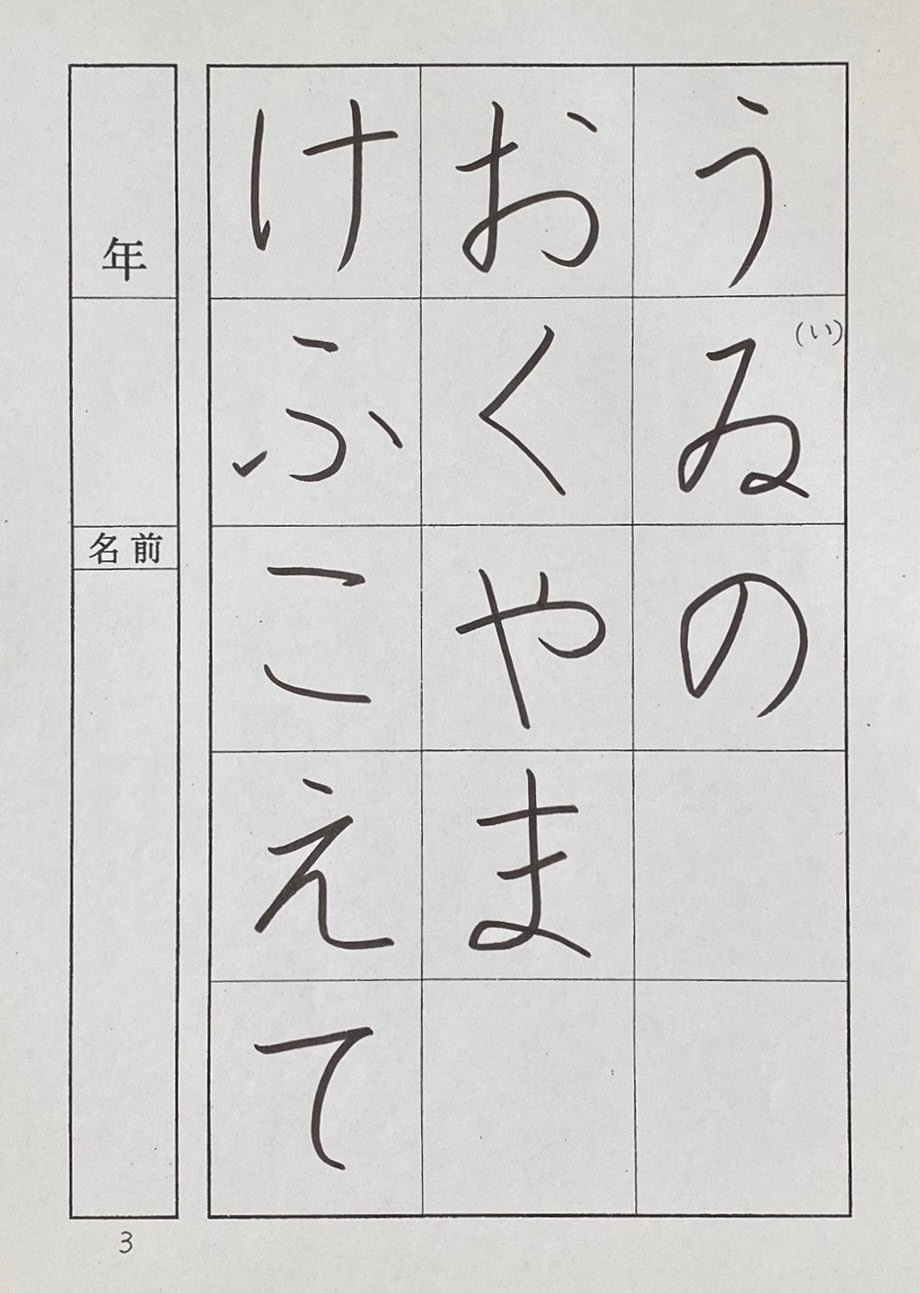 うゐの
(い)
おくやま
けふこえて
年
名前
3